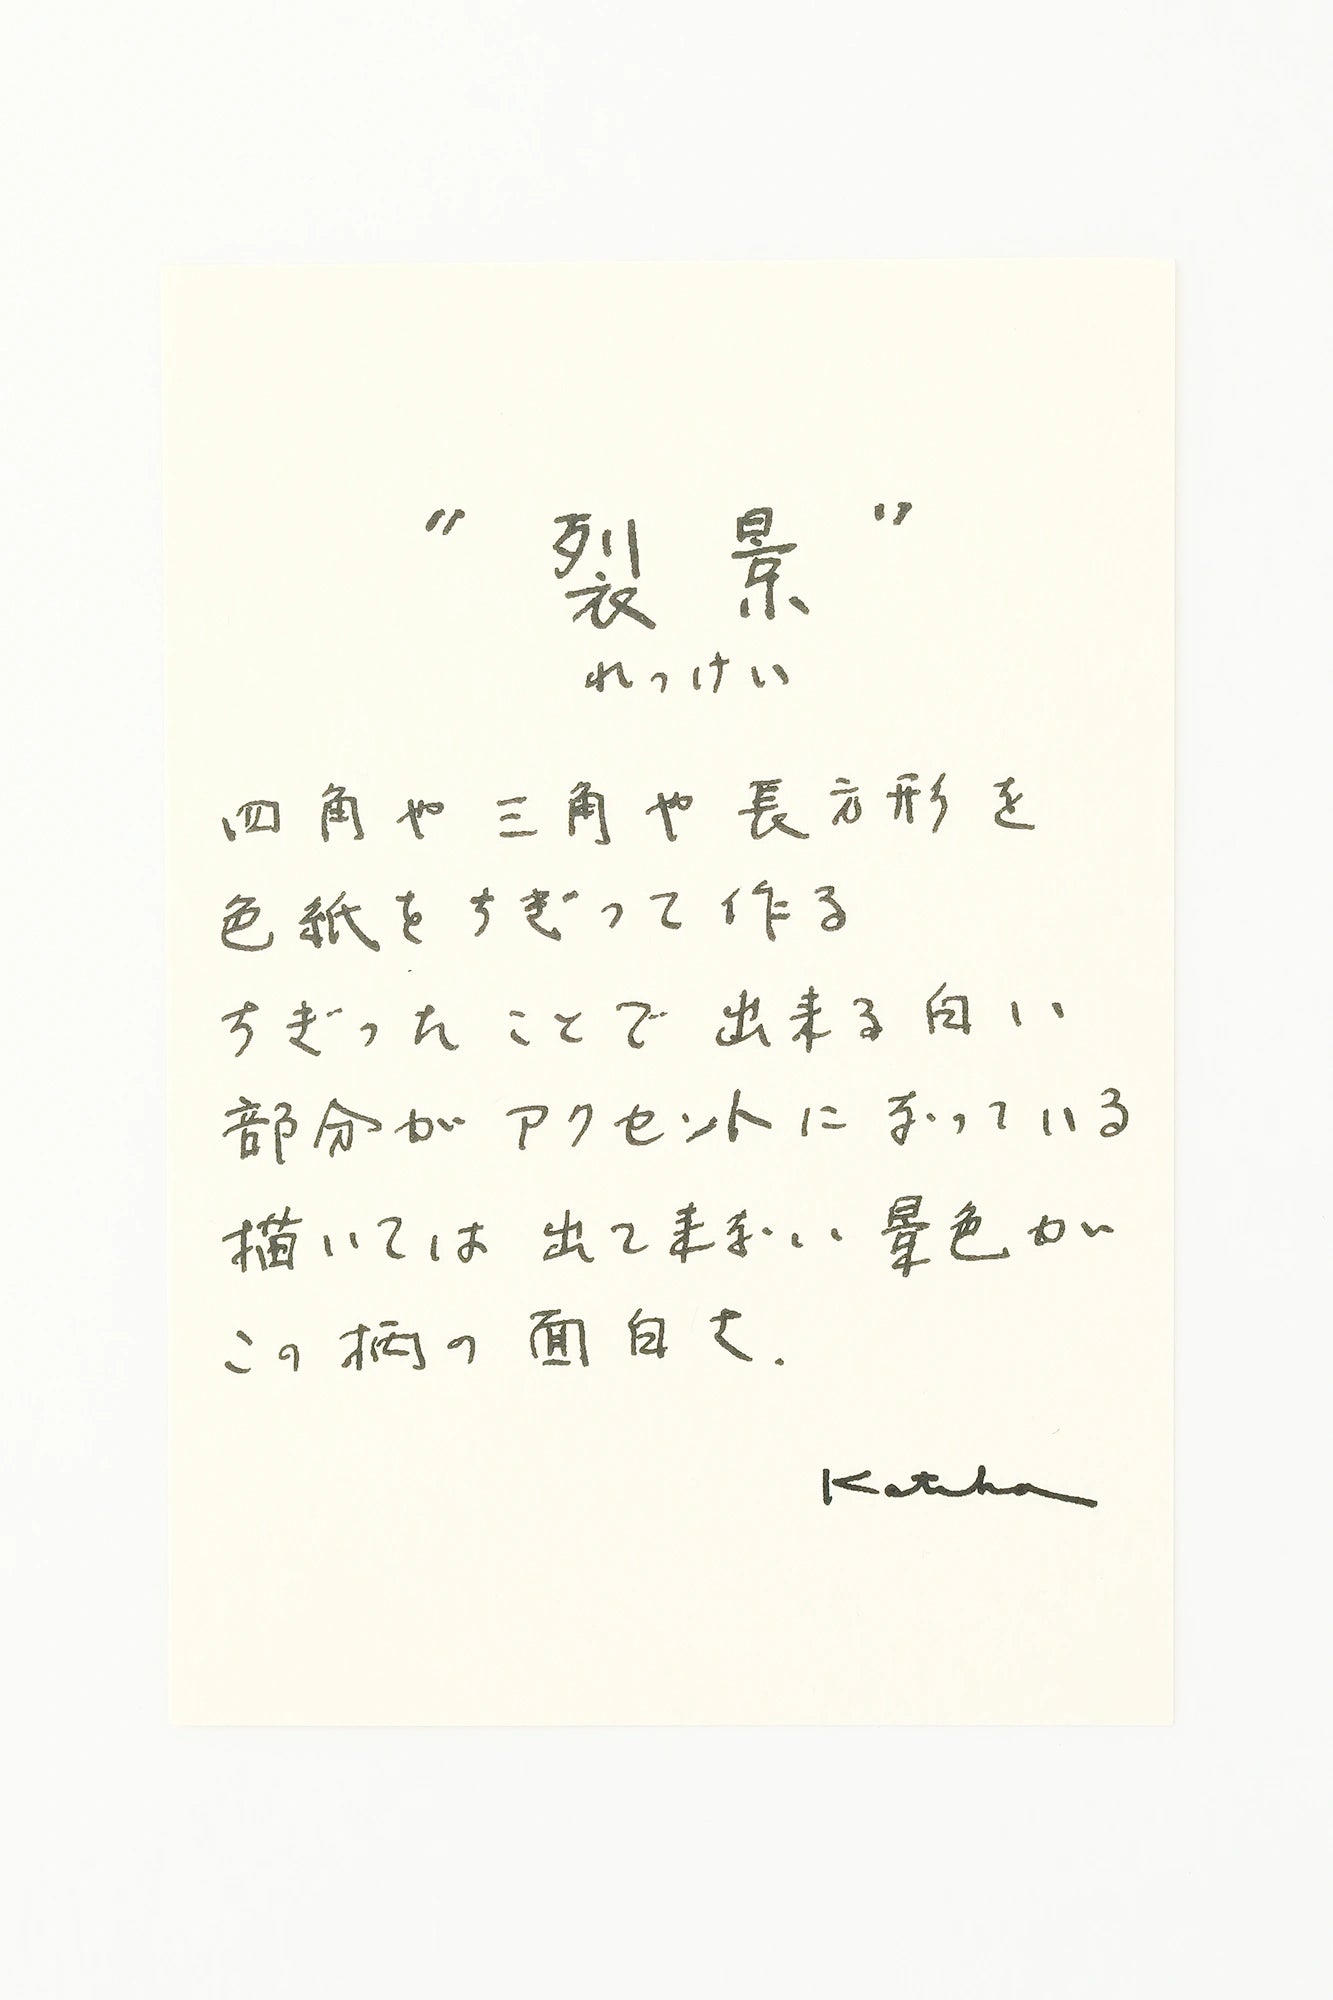 "裂景"
れっけい
四角や三角や長方形を
色紙をちぎって作る
ちぎったことで出来る白い
部分がアクセントになっている
描いては出て来ない景色が
この柄の面白さ.
Katsha